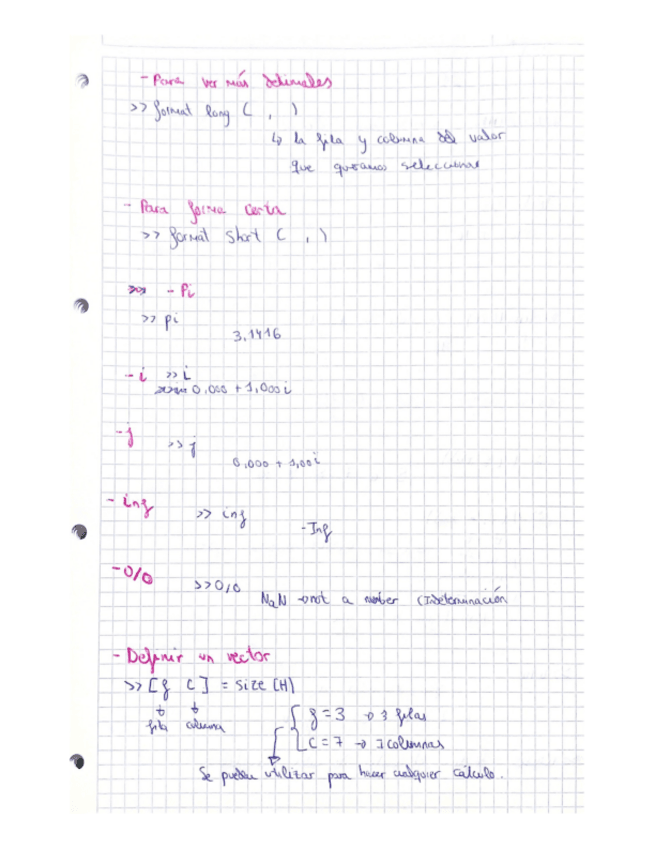 - Para ver más decimales
>> format long ( , )
↳ la fila y columna del valor
que queramos seleccionar
- Para forma corta
>> format short ( , )
- Pi
>> pi
3,1416
- i >> i
0,000 + 1,000i
- j >> j
0,000 + 1,00i
- inf >> inf
- Inf
- 0/0 >> 0/0
NaN → not a number (Indeterminación
- Definir un vector
>> [f c] = size (H)
fila columna
f = 3 → 3 filas
c = 7 → 7 columnas
Se pueden utilizar para hacer cualquier cálculo.